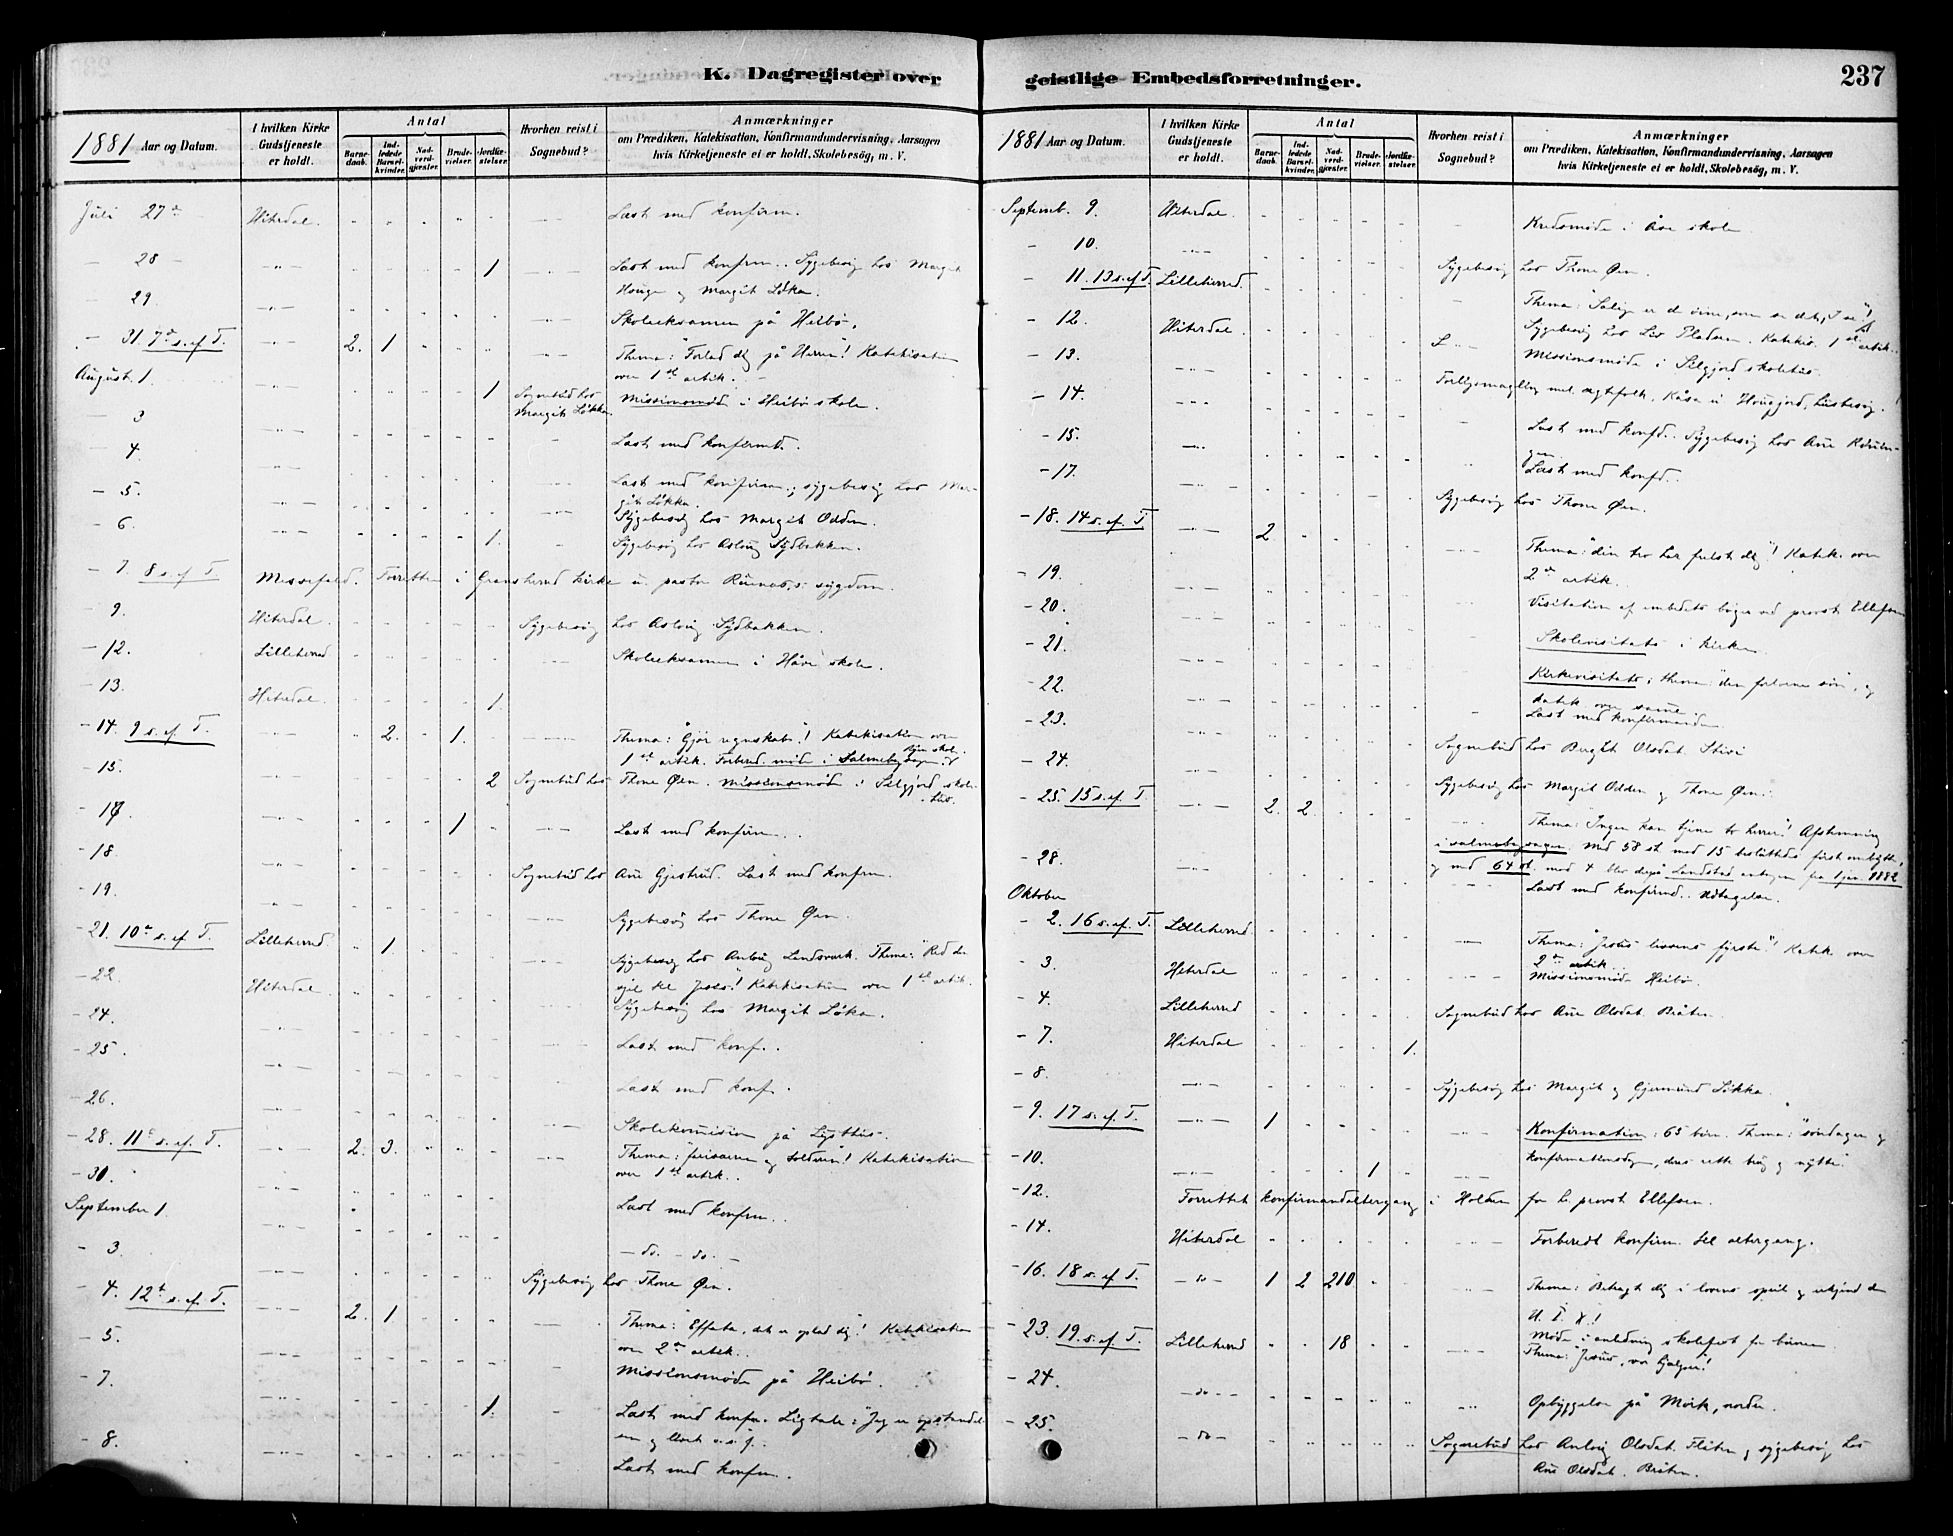 K. Dagregister over
1881 Aar og Datum.
I hvilken Kirke Gudstjeneste er holdt.
Antal
Barnedaab.
Indledede Barselkvinder.
Nadverdgjæster.
Brudevielser.
Jordfæstelser.
Hvorhen reist i Sognebud?
Anmærkninger
om Prædiken, Katekisation, Konfirmandundervisning, Aarsagen
hvis Kirketjeneste ei er holdt, Skolebesög, m. V.
Juli 27de Hiterdal. Læst med konfirm.
- 28 - 1 Læst med konfirm.. Sygebesøg hos Margit
Houge og Margit Løka.
29. Skoleeksamen på Heibø.
- 31. 7de s. ef. T. 2. 1 Thema: "Forlad dig på Herren"! Katekisation
over 1ste artik. -
August. 1. 1 Sognebud hos Margit Løkka. Missionsmøde i Heibø skole.
- 3 Læst med konfirmd.
- 4. Læst med konfirm.; sygebesøg hos Margit Løkka.
- 5. Sygebesøg hos Margit Odden.
- 6. 1. Sygebesøg hos Aslaug Sydbakken.
- 7. 8 s. ef. T. Messefald. Forrettn i Gransherred kirke u. pastor sygdom.
- 9. Hiterdal. Sygebesøg hos Aslaug Sydbakken.
- 12. Lilleherred Skoleeksamen i Håve skole.
- 13. Hiterdal. 1.
- 14. 9 s. ef. T. 2. 1. Thema: "Gjør regnskab"! Katekisation over
1ste artik. Forbered. møde i Salmebogsagen
- 15. 2 Sognebud hos Thone Øen. Missionsmøde i Seljord skole-
hus.
- 17 1 Læst med konfirm..
- 18. Sognebud hos Ane Gjestrud. Læst med konfirm.
- 19. Sygebesøg hos Thone Øen.
- 21. 10de s. ef. T. Lilleherred. 1. Sygebesøg hos Anlaug Landsverk. Thema: "Red din
sjel til Jesus"! Katekisation over 1ste artik.
- 22. Hiterdal. Sygebesøg hos Margit Løka.
- 24. Læst med konf..
- 25. Læst med konf.
- 26. Skolekomision på Lysthus.
- 28. 11te s. ef. T. 2. 3. Thema: farisæeren og tolderen! Katekisation
over 1ste artik..
- 30. Læst med konfirm..
September 1. - do. - do. -
- 3. Sygebesøg hos Thone Øen.
- 4. 12te s. ef. T. 2. 1. Thema: "Effata, det er oplad dig"! Katekisation
over 2den artik..
- 5. Missionsmøde på Heibø.
- 7. 1. Læst med konfir. Ligtale: "Jeg er opstandel-
sen og livet o.s.v..
- 8. Læst med konfirm.
geistlige Embedsforretninger.
237
1881 Aar og Datum.
I hvilken Kirke Gudstjeneste er holdt.
Antal
Barnedaab.
Indledede Barselkvinder.
Nadverdgjæster.
Brudevielser.
Jordfæstelser.
Hvorhen reist i Sognebud?
Anmærkninger
om Prædiken, Katekisation, Konfirmandundervisning, Aarsagen
hvis Kirketjeneste ei er holdt, Skolebesög, m. V.
Septemb. 9. Hiterdal. Kredsmøde i Åse skole
- 10. Sygebesøg hos Thone Øen.
- 11. 13 s. ef. T. Lilleherred. Thema: "Salig er de øine, som se det, I se"!
Sygebesøg hos Liv Katekis. 1ste artik..
- 12. Hiterdal. Missionsmøde i Seljord skolehus.
- 13. Forligsmægling mel. ægtefolk, Kåsa u Hougjord, husbesøg.
- 14. Læst med konfd.. Sygebesøg hos Ane
- 15. Læst med konfd..
- 17. Sygebesøg hos Thone Øen.
- 18. 14 s. ef. T. 2. Thema: "din tro har frelst dig"! Katek. over
2den artik..
- 19. Visitation af embedets bøger ved provst Ellefsen
- 20. Skolevisitats i kirken
- 21. Kirkevisitats; thema: "den forlorne søn", og
katek over samme.
- 22. Læst med konfirmanden
- 23. Sognebud hos Birgit Olsdat. Stivi
- 24. Sygebesøg hos Margit Odden og Thone Øen.
- 25. 15 s. ef. T. 2. 2. Thema: "Ingen kan tjene to herrer"! Afstemning
i salmebogsagen. Med 58 st. mod 15 besluttedes först ombytte,
og med 64 st. mod 4 blev derpå Landstad antagen fra 1 jan 1882
- 28. Læst med konfirmd.. Udtagelse.
Oktober
- 2. 16 s. ef. T. Lilleherred Thema: "Jesus livsens fyrste"! Katek over
2den artik..
- 3. Hiterdal Missionsmøde Heibø.
- 4. Lilleherred Sognebud hos Ane Olsdat. Bråten.
- 7. Hiterdal 1.
- 8. Sygebesøg hos Margit og Gjermund Løkka.
- 9. 17 s. ef. T. 1 Konfirmation: 65 børn. Thema: "søndagen og
konfirmationsdagen, deres rette brug og nytte".
- 10. 1
- 12. Forrettet konfirmandaltergang i Holden for h. provst Ellefsen.
- 14. Hiterdal Forberedt konfirm. til altergang.
- 16. 18 s. ef. T. - do - 1 2 210 Thema: "Betragt dig i lovens speil og erkjend din
- 23. 19. s. ef. T. Lilleherred 18 Møde i anledning skolefest for børnene
Thema: "Jesus, vor hjælper"!
- 24. - do - Opbyggelse på Mörk, nordre.
- 25. - do - Sognebud hos Anlaug Olsdat. Fliten og sygebesøg hos
Ane Olsdat. Bråten.